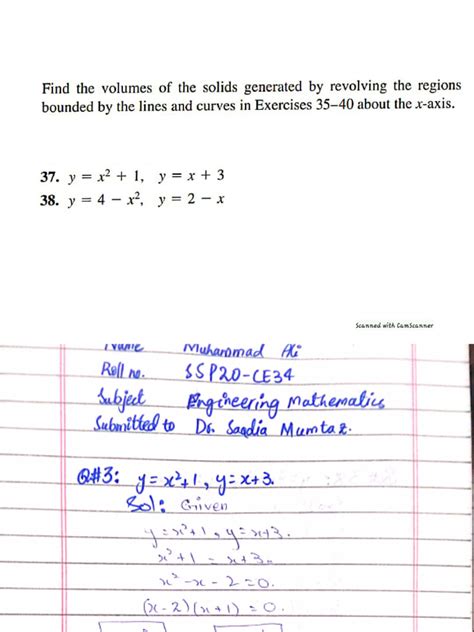 Find the volumes of the solids generated by revolving the regions
bounded by the lines and curves in Exercises 35–40 about the x-axis.
37. y = x² + 1, y = x + 3
38. y = 4 − x², y = 2 − x
Scanned with CamScanner
Name Muhammad Ali
Roll no. SSP20-CE34
Subject Engineering Mathematics
Submitted to Dr. Saadia Mumtaz.
Q#3: y = x²+1, y = x+3.
Sol: Given
y = x²+1, y = x+3.
x²+1 = x+3.
x²-x-2=0.
(x-2)(x+1)=0.